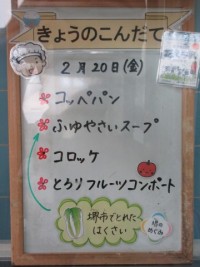 きょうのこんだて
2月20日(金)
コッペパン
ふゆやさいスープ
コロッケ
とろりフルーツコンポート
堺市でとれた
はくさい
堺の
めぐみ